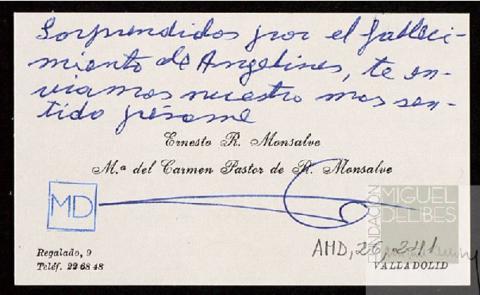 Sorprendidos por el falleci-
miento de Angelines, te en-
viamos nuestro mas sen-
tido pésame
Ernesto R. Monsalve
M.ª del Carmen Pastor de R. Monsalve
MD
FUNDACIÓN
MIGUEL
DELIBES
AMD, 26, 241
Regalado, 9
Teléf. 22 68 48
VALLADOLID